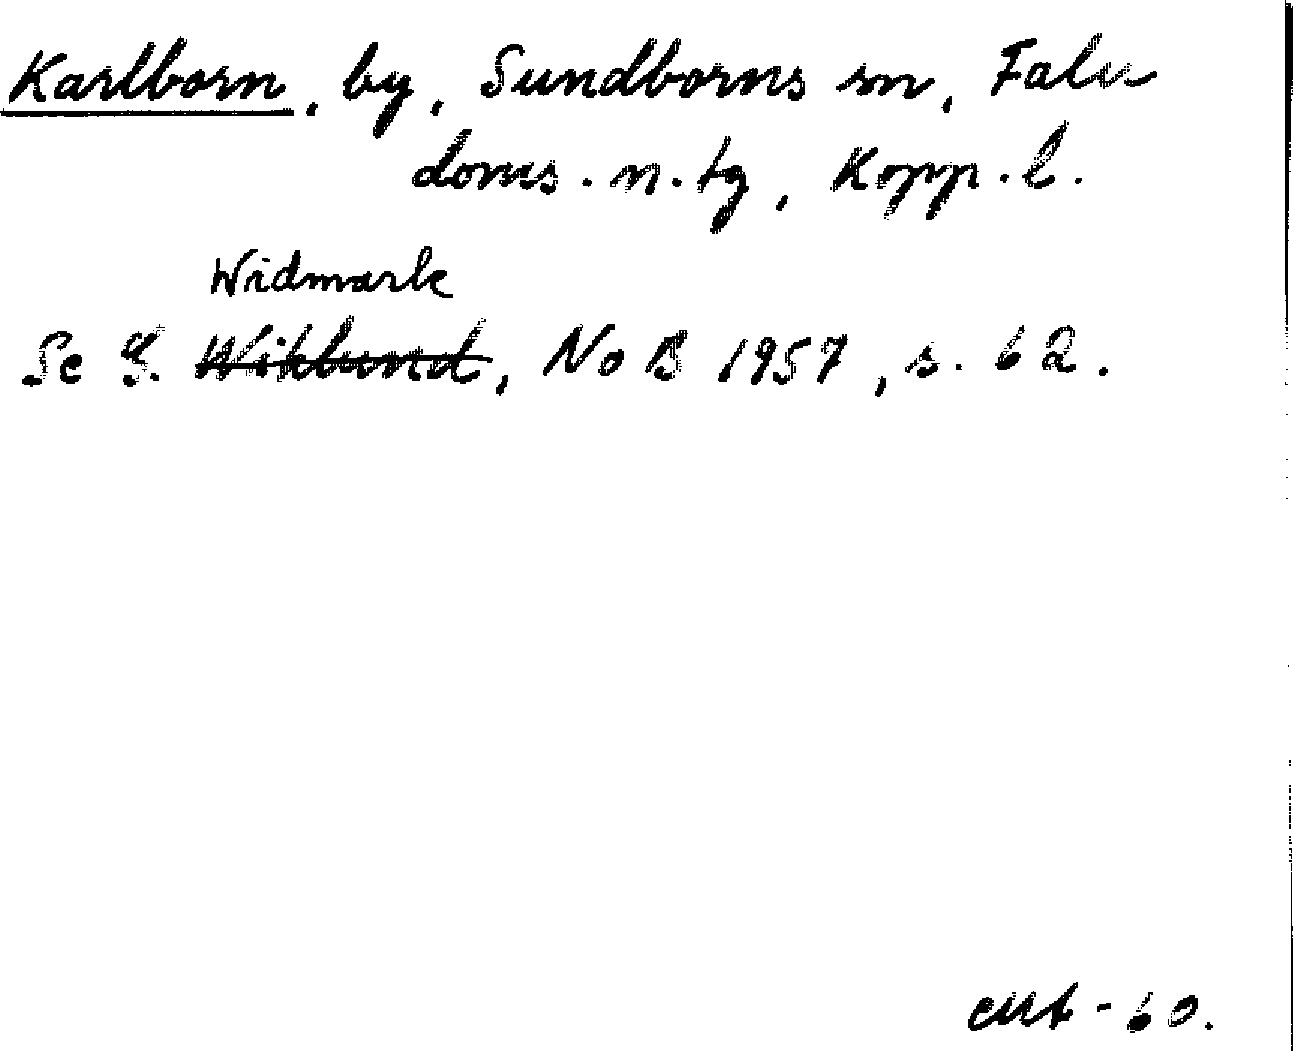 Karlborn, by, Sundborns sn, Falu
doms. n. tg, Kopp. l.
Widmark
Se G. Wiklund, NoB 1957, s. 62.
-60.